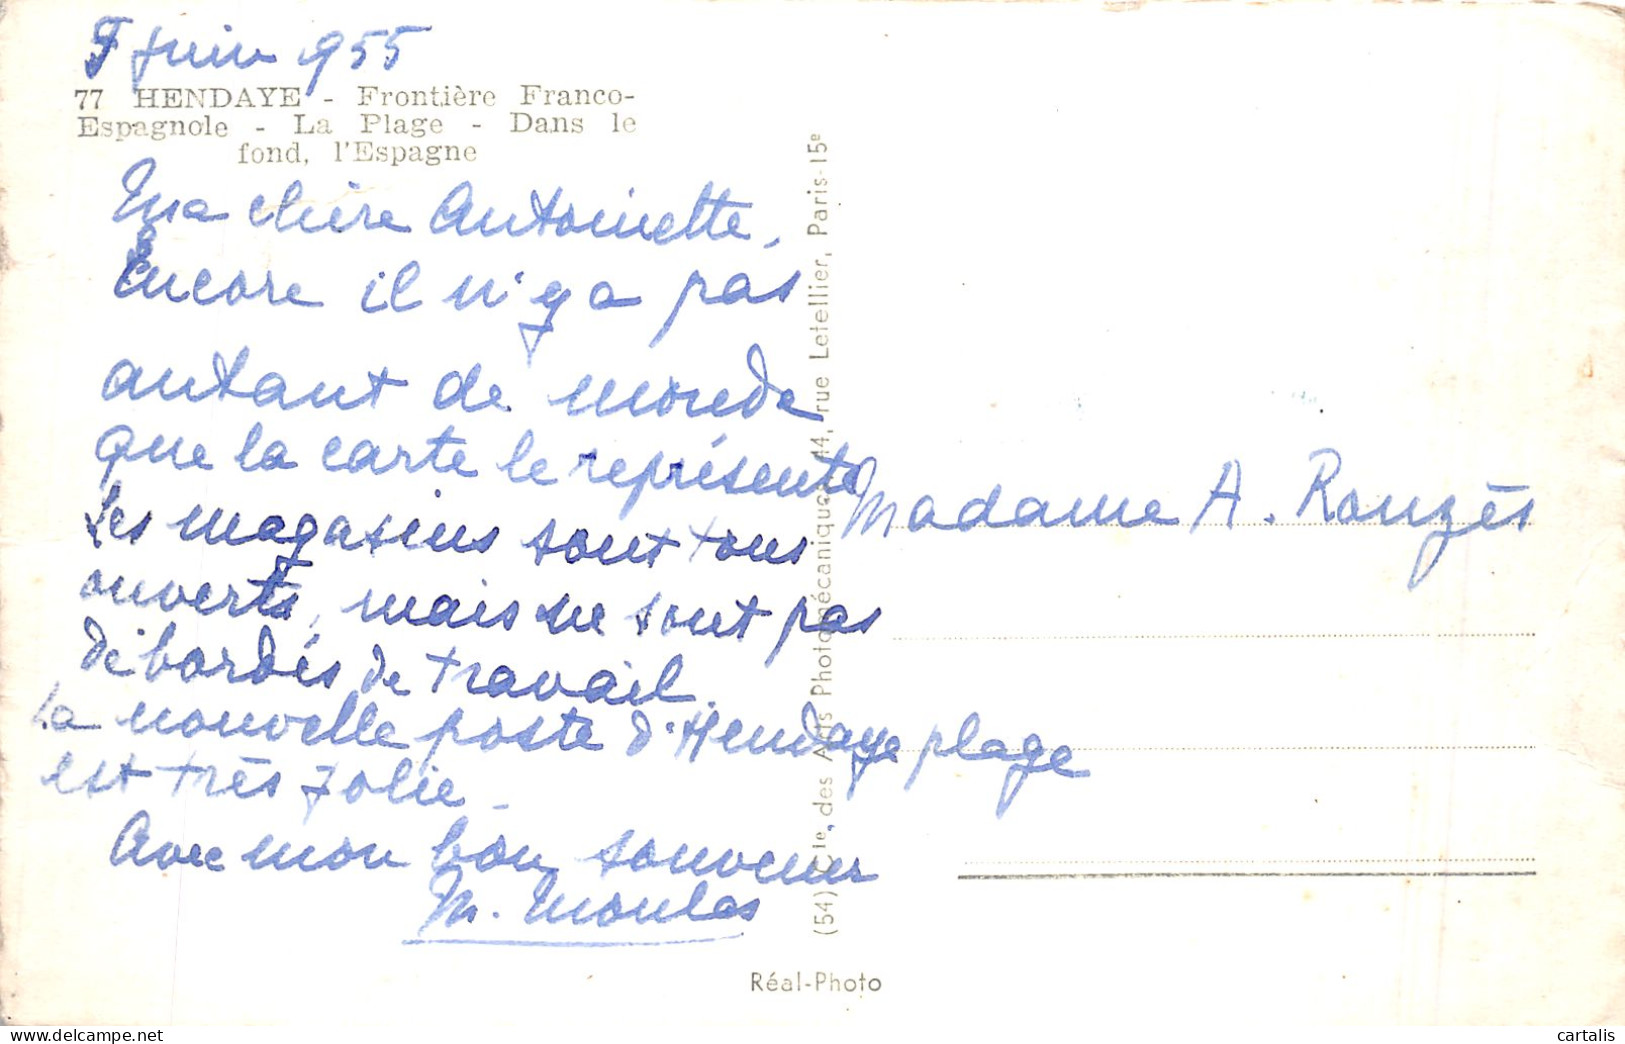 juin 955
77 HENDAYE - Frontière Franco-
Espagnole - La Plage - Dans le
fond, l'Espagne
Ma chère Antoinette,
Encore il n'y a pas
autant de monde
que la carte le représente
Les magasins sont tous
ouverts, mais ne sont pas
débordés de travail.
La nouvelle poste d'Hendaye plage
est très jolie -
Avec mon bon souvenir
M. Moulas
(54) Cie. des Arts Photomécaniques, 44, rue Letellier, Paris-15e
Madame A. Rouzès
Réal-Photo
cartalis